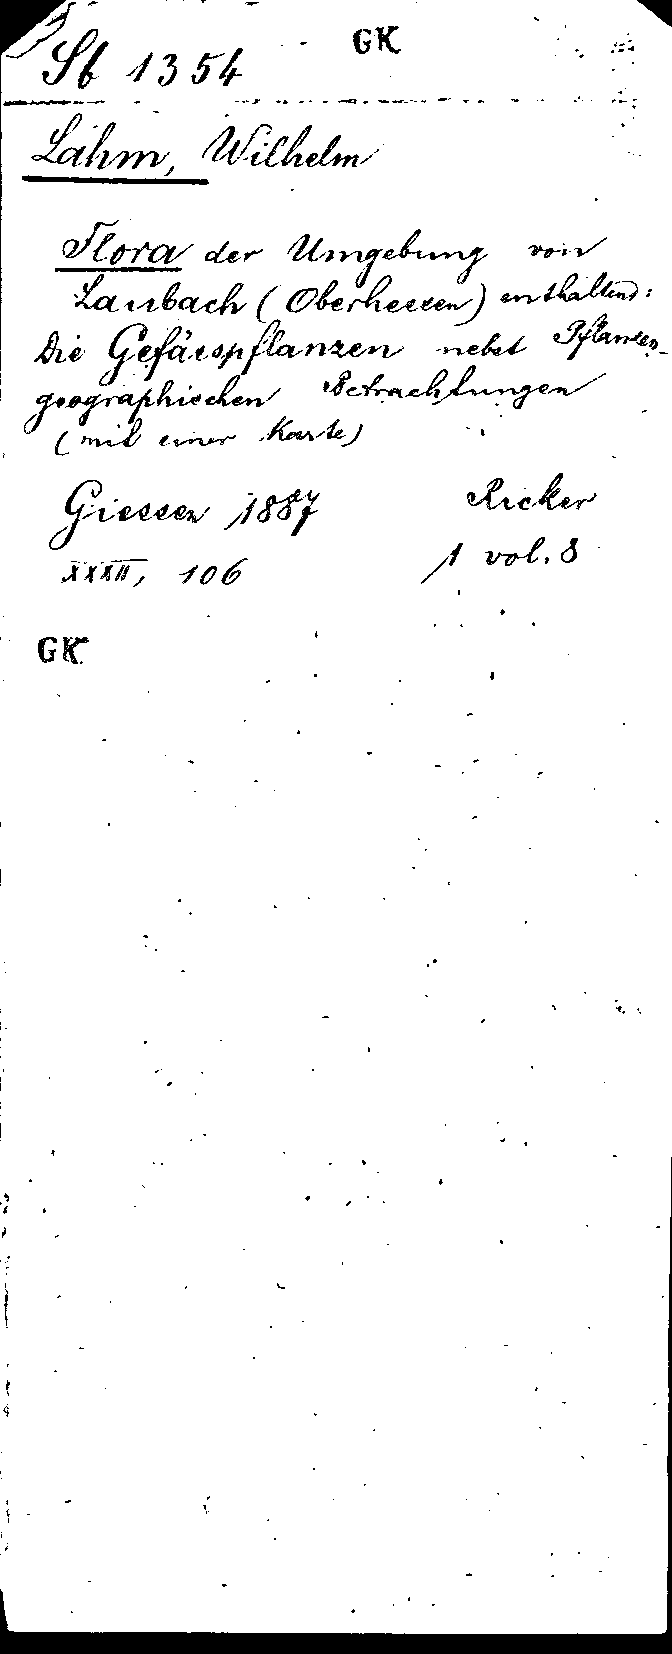 GK
Sf 1354
Lahm, Wilhelm
Flora der Umgebung von
Laubach (Oberhessen) enthaltend:
Die Gefässpflanzen nebst Pflanzen-
geographischen Betrachtungen
(mit einer Karte)
Giessen 1887 Ricker
XXXII, 106 1 vol. 8
GK